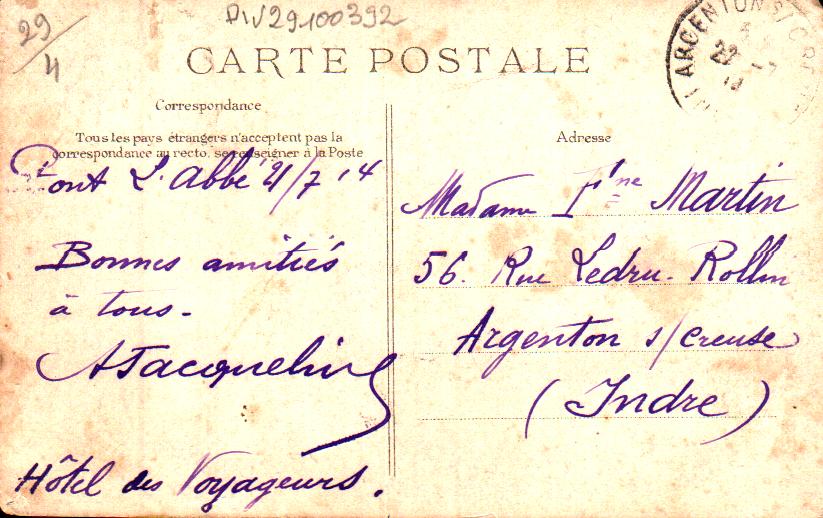 29/4
DIV29100392
CARTE POSTALE
ARGENTON S/ CREUSE
22 - 7
Correspondance
Tous les pays étrangers n'acceptent pas la
correspondance au recto, se renseigner à la Poste
Pont L'abbé 21/7 14
Bonnes amitiés
à tous.
AJacqueline
Hôtel des Voyageurs.
Adresse
Madame Martin
56. Rue Ledru-Rollin
Argenton s/ creuse
(Indre)